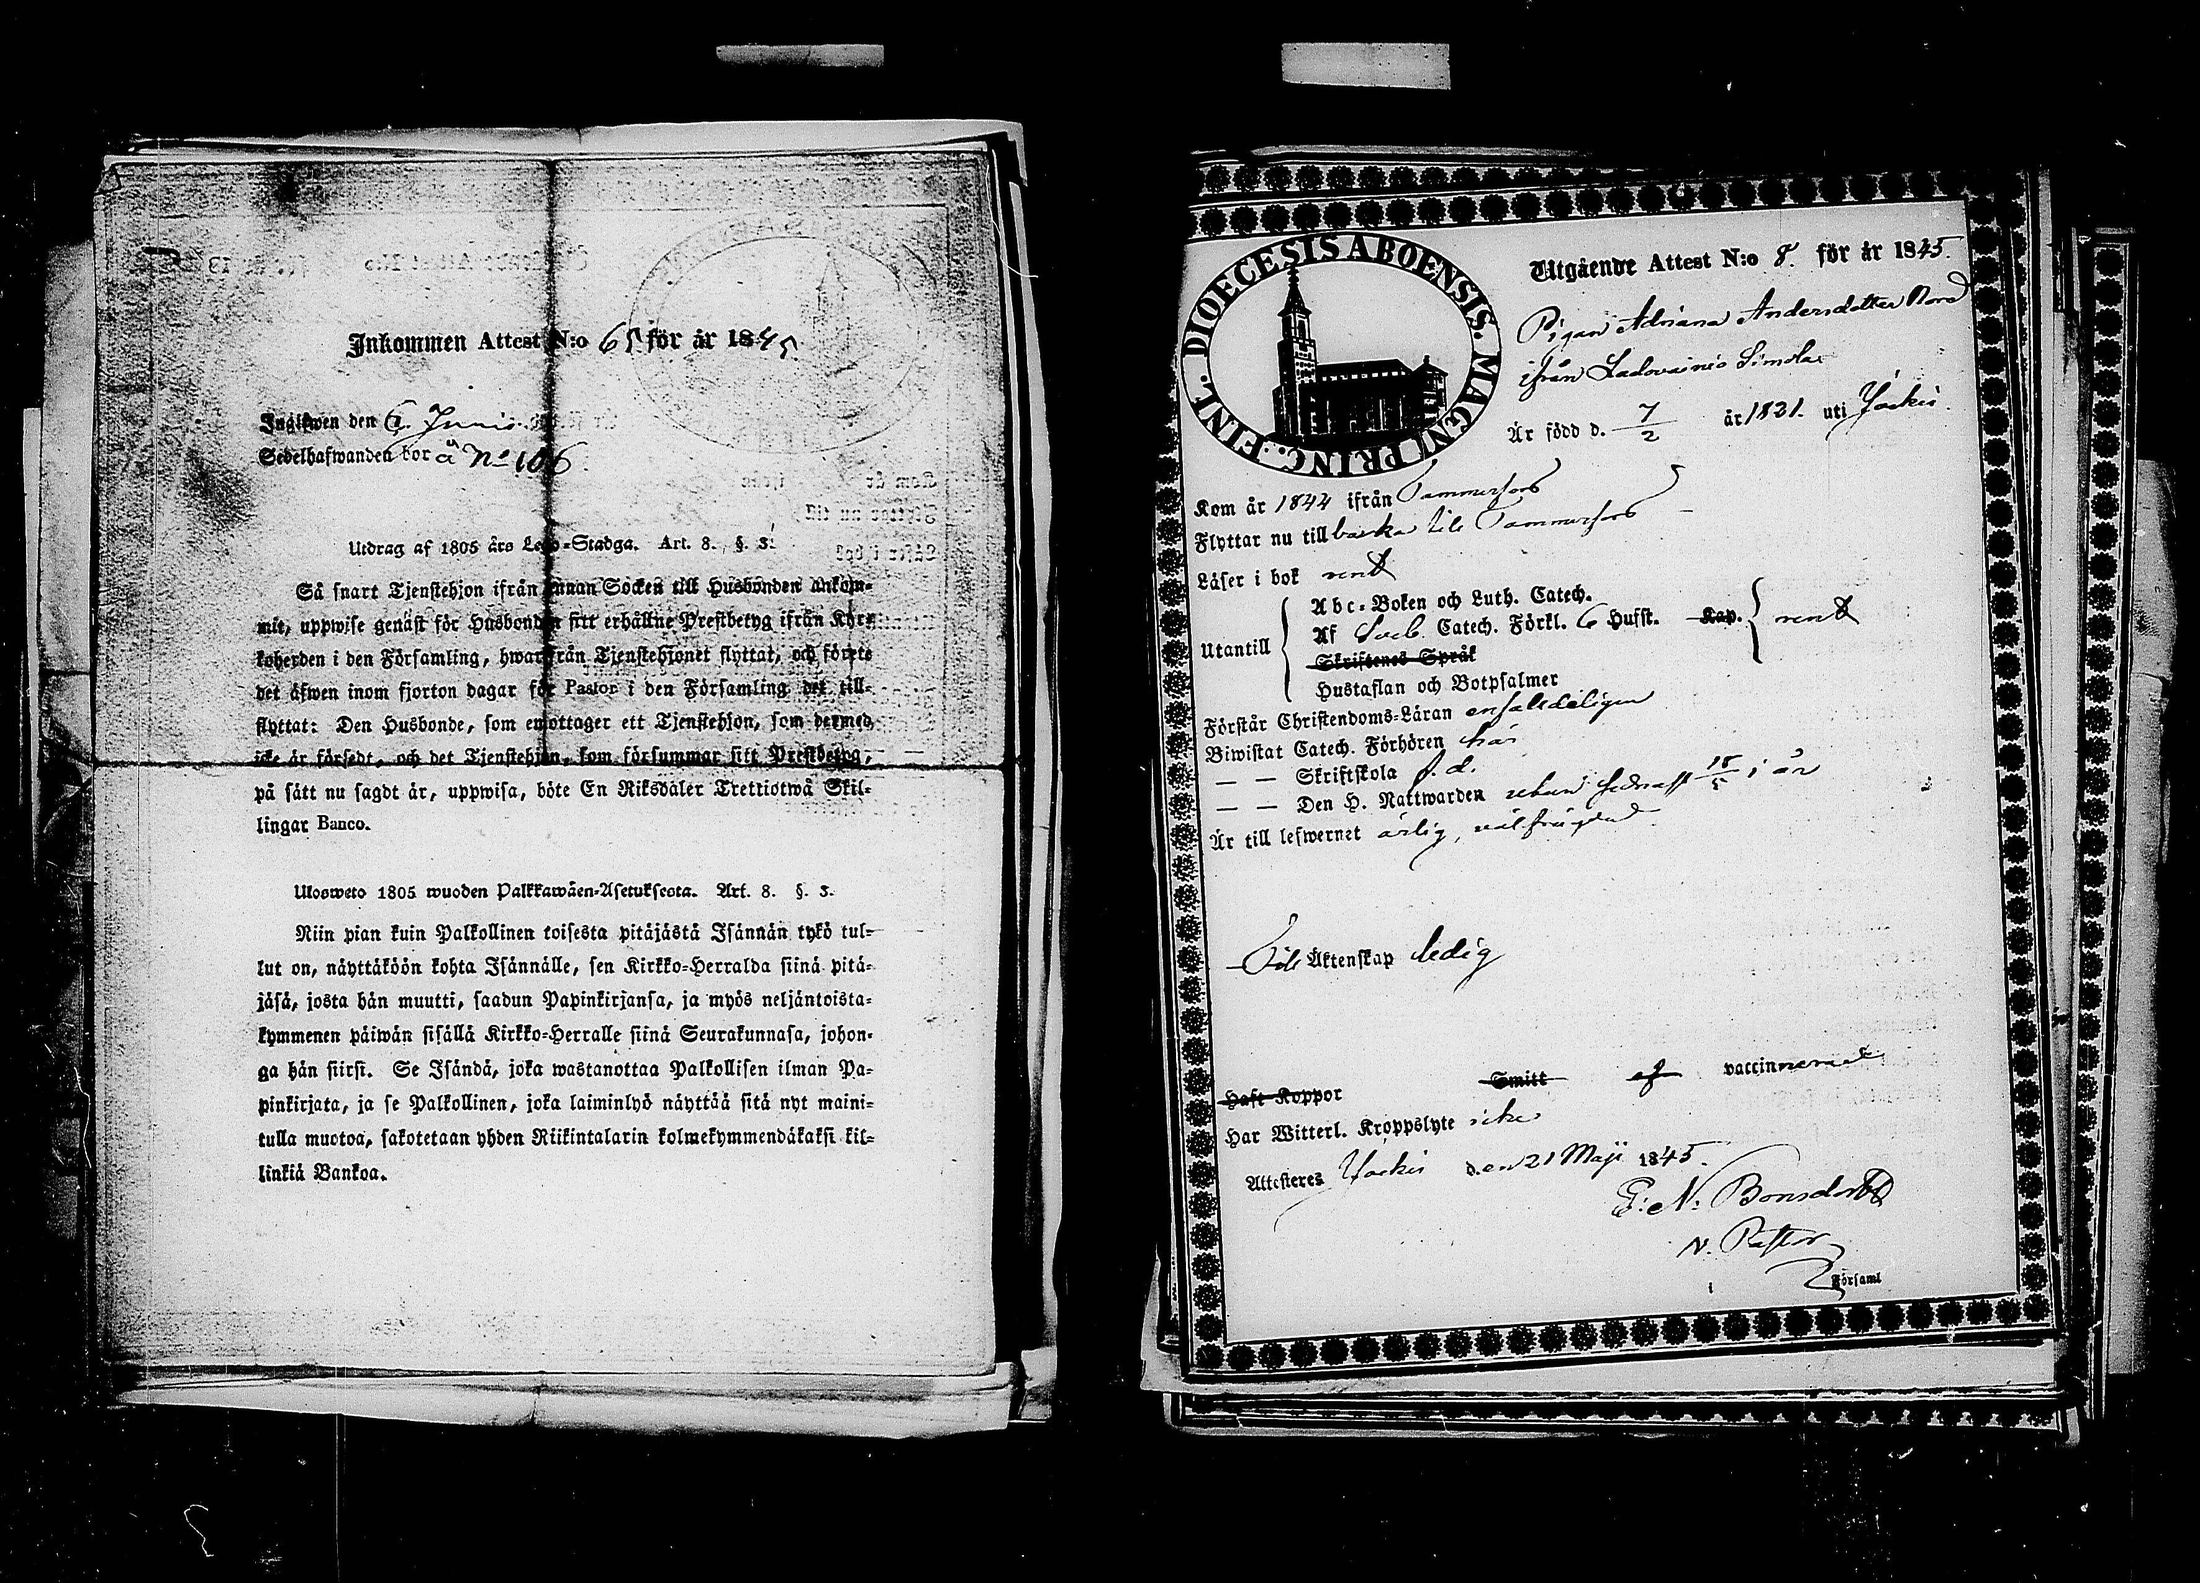 Inkommen Attest N:o 65 för år 1845
Ingifwen den 6. Junii
Sedelhafwanden bor å No 106
Utdrag af 1805 års Lego-Stadga. Art. 8. §. 3.
Så snart Tjenstehjon ifrån annan Socken till Husbonden ankom-
mit, uppwise genast för Husbonden sitt erhållne Prestbetyg ifrån Kyrk-
koherden i den Församling, hwarifrån Tjenstehjonet flyttat, och förete
det äfwen inom fjorton dagar för Pastor i den Församling det till-
flyttat: Den Husbonde, som emottager ett Tjenstehjon, som dermed
icke är försedt, och det Tjenstehjon, som försummar sitt Prestbetyg,
på sätt nu sagdt är, uppwisa, böte En Riksdaler Tretriotwå Skil-
lingar Banco.
Ulosweto 1805 wuoden Palkkawäen-Asetuksesta. Art. 8. §. 3.
Niin pian kuin Palkollinen toisesta pitäjästä Isännän tykö tul-
lut on, näyttäköön kohta Isännälle, sen Kirkko-Herralda siinä pitä-
jäsä, josta hän muutti, saadun Papinkirjansa, ja myös neljäntoista-
kymmenen päiwän sisällä Kirkko-Herralle siinä Seurakunnasa, johon-
ga hän siirsi. Se Isändä, joka wastanottaa Palkollisen ilman Pa-
pinkirjata, ja se Palkollinen, joka laiminlyö näyttää sitä nyt maini-
tulla muotoa, sakotetaan yhden Riikintalarin kolmekymmendäkaksi kil-
linkiä Bankoa.
DIOECESIS ABOENSIS. MAGNI PRINC. FINL.
Utgående Attest N:o 8. för år 1845.
Pigan Adriana Andersdotter Nord
ifrån Ladovainio Simola
Är född d. 7/2 år 1821. uti Ypäkis.
Kom år 1844 ifrån Tammerfors
Flyttar nu till baka till Tammerfors
Läser i bok rent
Utantill
Abc-Boken och Luth. Catech.
Af Sveb. Catech. Förkl. 6 Hufst. Kap. rent
Skriftenes Språk
Hustaflan och Botpsalmer
Förstår Christendoms-Läran enfaldeligen
Biwistat Catech. Förhören här
— — Skriftskola s. d.
— — Den H. Nattwarden sednast 18/5 i år
Är till lefwernet ärlig, välfrägdad
Till Äktenskap ledig
Haft Koppor Smitt af vaccinnerad
Har Witterl. Kroppslyte icke
Attesteres den 21 Maji 1845.
E: N: Bonsdorff
v. Pastor
Församl